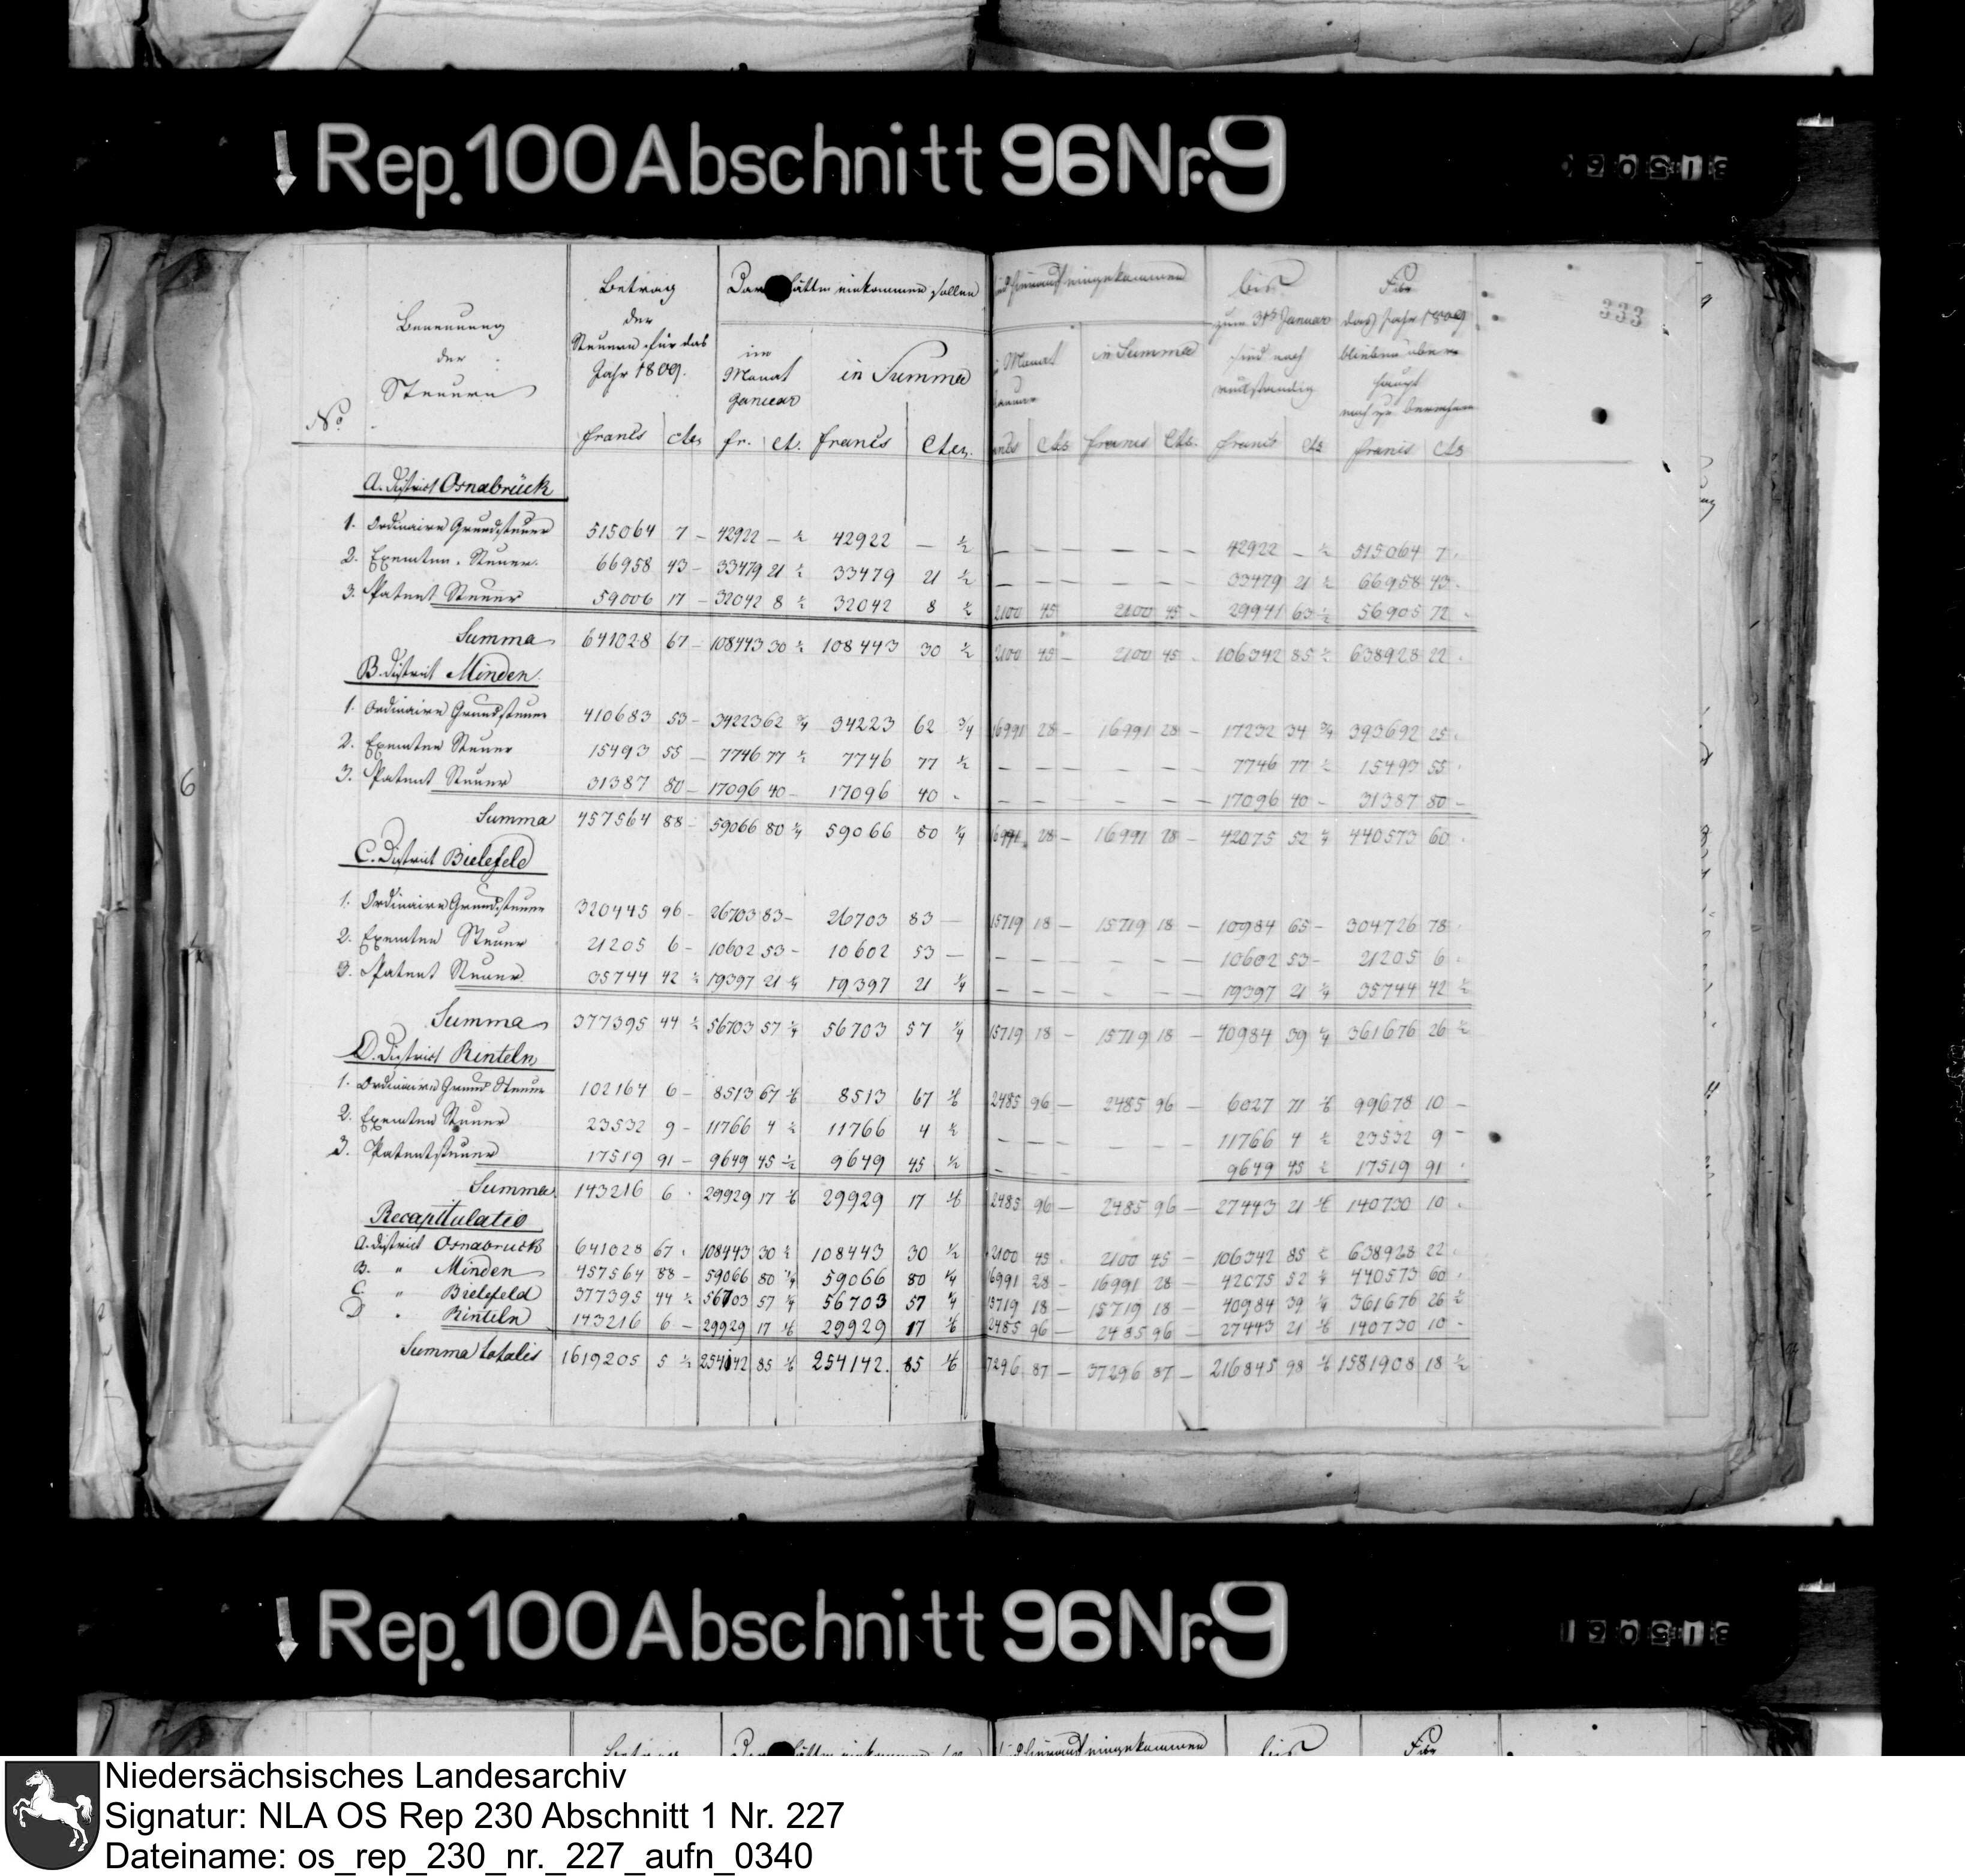 Rep. 100 Abschnitt 96 Nr. 9
No
Benennung
der
Steuern
Betrag
der
Steuern für das
Jahr 1809.
Davon hätten einkommen sollen
im
Monat
Januar
in Summa
sind hierauf eingekommen
Monat
in Summa
bis
zum 31t Januar
sind noch
rückständig
Für
das Jahr 1809
bleiben über
haupt
noch zu berechnen
333
francs cts fr. ct. francs cts. cts francs cts. francs cts francs cts
A. District Osnabrück
1. Ordinaire Grundsteuer 515064 7 – 42922 – ½ 42922 – ½ – – – – – – 42922 – ½ 515064 7 .
2. Exemten Steuer. 66958 43 – 33479 21 ½ 33479 21 ½ – – – – – – 33479 21 ½ 66958 43 .
3. Patent Steuer 59006 17 – 32042 8 ½ 32042 8 ½ 2100 45 2100 45 – 29941 63 ½ 56905 72 .
Summa 641028 67 – 108443 30 ½ 108443 30 ½ 2100 45 – 2100 45 . 106342 85 ½ 638928 22 .
B. District Minden.
1. Ordinaire Grundsteuer 410683 53 – 34223 62 ¾ 34223 62 ¾ 16991 28 – 16991 28 – 17232 34 ¾ 393692 25 .
2. Exemten Steuer 15493 55 – 7746 77 ½ 7746 77 ½ – – – – – – 7746 77 ½ 15493 55 .
3. Patent Steuer 31387 80 – 17096 40 – 17096 40 – – – – – – 17096 40 – 31387 80 –
Summa 457564 88 – 59066 80 ¼ 59066 80 ¼ 16991 28 – 16991 28 – 42075 52 ¼ 440573 60 .
C. District Bielefeld
1. Ordinaire Grundsteuer 320445 96 – 26703 83 – 26703 83 — 15719 18 – 15719 18 – 10984 65 – 304726 78 .
2. Exemten Steuer 21205 6 – 10602 53 – 10602 53 — – – – – – – 10602 53 – 21205 6 .
3. Patent Steuer 35744 42 ½ 19397 21 ¼ 19397 21 ¼ – – – – – – 19397 21 ¼ 35744 42 ½
Summa 377395 44 ½ 56703 57 ¼ 56703 57 ¼ 15719 18 – 15719 18 – 40984 39 ¼ 361676 26 ½
D. District Rinteln
1. Ordinaire Grund Steuer 102164 6 – 8513 67 ⅙ 8513 67 ⅙ 2485 96 – 2485 96 – 6027 71 ⅙ 99678 10 –
2. Exemten Steuer 23532 9 – 11766 4 ½ 11766 4 ½ – – – – – – 11766 4 ½ 23532 9 –
3. Patentsteuer 17519 91 – 9649 45 ½ 9649 45 ½ – – – 9649 45 ½ 17519 91 .
Summa 143216 6 . 29929 17 ⅙ 29929 17 ⅙ 2485 96 – 2485 96 – 27443 21 ⅙ 140730 10 .
Recapitulatio
A. District Osnabrück 641028 67 . 108443 30 ½ 108443 30 ½ 2100 45 . 2100 45 – 106342 85 ½ 638928 22 .
B. " Minden 457564 88 – 59066 80 ¼ 59066 80 ¼ 16991 28 – 16991 28 – 42075 52 ¼ 440573 60 .
C. " Bielefeld 377395 44 ½ 56703 57 ¼ 56703 57 ¼ 15719 18 – 15719 18 – 40984 39 ¼ 361676 26 ½
D " Rinteln 143216 6 – 29929 17 ⅙ 29929 17 ⅙ 2485 96 – 2485 96 – 27443 21 ⅙ 140730 10 –
Summa totalis 1619205 5 ½ 254142 85 ⅙ 254142. 85 ⅙ 7296 87 – 37296 87 – 216845 98 ⅙ 1581908 18 ½
6
Rep. 100 Abschnitt 96 Nr. 9
Niedersächsisches Landesarchiv
Signatur: NLA OS Rep 230 Abschnitt 1 Nr. 227
Dateiname: os_rep_230_nr._227_aufn_0340